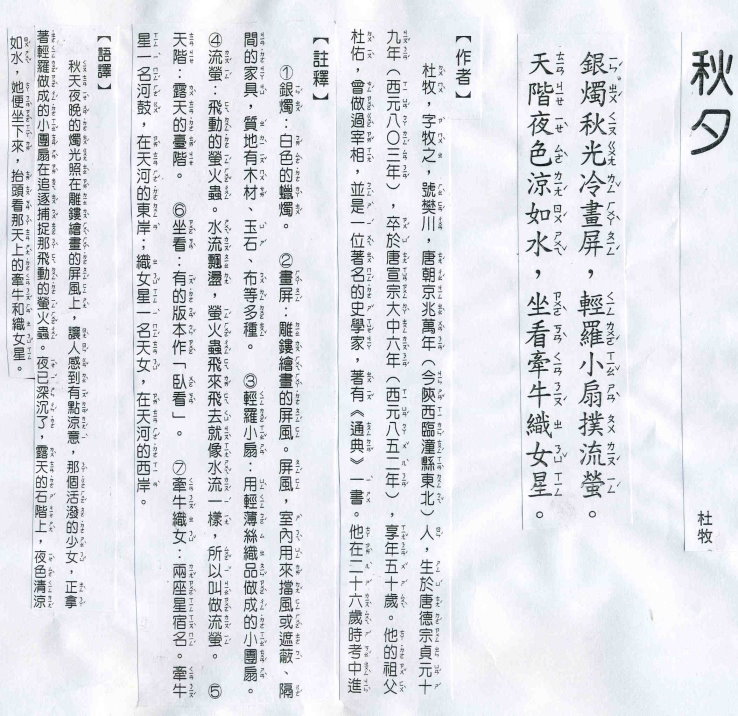 秋夕
杜牧
銀燭秋光冷畫屏，輕羅小扇撲流螢。
天階夜色涼如水，坐看牽牛織女星。
【作者】
杜牧，字牧之，號樊川，唐朝京兆萬年（今陝西臨潼縣東北）人，生於唐德宗貞元十
九年（西元八〇三年），卒於唐宣宗大中六年（西元八五二年），享年五十歲。他的祖父
杜佑，曾做過宰相，並是一位著名的史學家，著有《通典》一書。他在二十六歲時考中進
【註釋】
①銀燭：白色的蠟燭。　②畫屏：雕鏤繪畫的屏風。屏風，室內用來擋風或遮蔽、隔
間的家具，質地有木材、玉石、布等多種。　③輕羅小扇：用輕薄絲織品做成的小團扇。
④流螢：飛動的螢火蟲。水流飄盪，螢火蟲飛來飛去就像水流一樣，所以叫做流螢。　⑤
天階：露天的臺階。　⑥坐看：有的版本作「臥看」。　⑦牽牛織女：兩座星宿名。牽牛
星一名河鼓，在天河的東岸；織女星一名天女，在天河的西岸。
【語譯】
秋天夜晚的燭光照在雕鏤繪畫的屏風上，讓人感到有點涼意，那個活潑的少女，正拿
著輕羅做成的小團扇在追逐捕捉那飛動的螢火蟲。夜已深沉了，露天的石階上，夜色清涼
如水，她便坐下來，抬頭看那天上的牽牛和織女星。